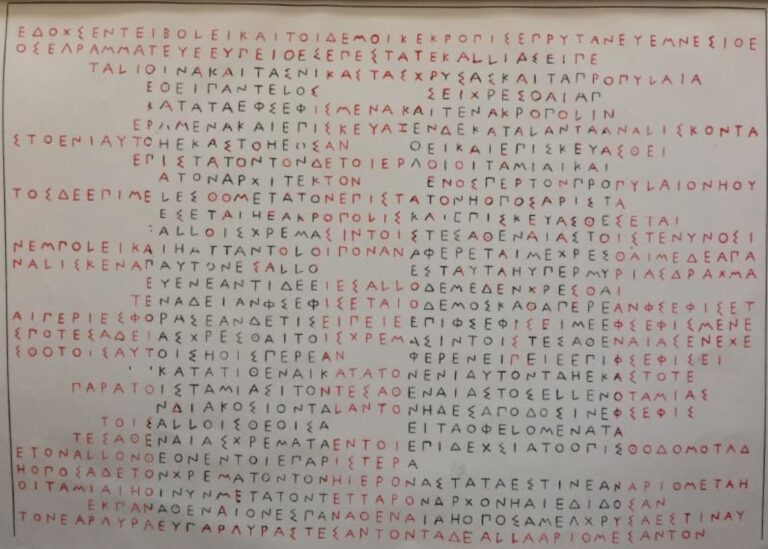 ΕΔΟΧΣΕΝΤΕΙΒΟLΕΙΚΑΙΤΟΙΔΕΜΟΙΚΕΚΡΟΠΙΣΕΠΡΥΤΑΝΕΥΕΜΝΕΣΙΘΕ
ΟΣΕΛΡΑΜΜΑΤΕΥΕΕΥΠΕΙΘΕΣΕΠΕΣΤΑΤΕΚΑLLΙΑΣΕΙΠΕ
ΤΑLΙΘΙΝΑΚΑΙΤΑΣΝΙΚΑΣΤΑΣΧΡΥΣΑΣΚΑΙΤΑΠΡΟΠΥLΑΙΑ
ΕΘΕΙΠΑΝΤΕLΟΣ ΣΕΙΧΡΕΣΘΑΙΑΠ
ΚΑΤΑΤΑΕΦΣΕΦΙΣΜΕΝΑΚΑΙΤΕΝΑΚΡΟΠΟLΙΝ
ΕΡΛΜΕΝΑΚΑΙΕΠΙΣΚΕΥΑΙΕΝΔΕΚΑΤΑLΑΝΤΑΑΝΑLΙΣΚΟΝΤΑ
ΣΤΟΕΝΙΑΥΤΟΗΕΚΑΣΤΟΗΕΟΣΑΝ ΘΕΙΚΑΙΕΠΙΣΚΕΥΑΣΘΕΙ
ΕΠΙΣΤΑΤΟΝΤΟΝΔΕΤΟΙΕΡΛΟΙΟΙΤΑΜΙΑΙΚΑΙ
ΑΤΟΝΑΡΧΙΤΕΚΤΟΝ ΕΝΟΣΠΕΡΤΟΝΠΡΟΠΥLΑΙΟΝΗΟΥ
ΤΟΣΔΕΕΠΙΜΕLΕΣΘΟΜΕΤΑΤΟΝΕΠΙΣΤΑΤΟΝΗΟΠΟΣΑΡΙΣΤΑ
ΕΣΕΤΑΙΗΕΑΚΡΟΠΟLΙΣΚΑΙΕΠΙΣΚΕΥΑΣΘΕΣΕΤΑΙ
:ΑLLΟΙΣΧΡΕΜΑΣΙΝΤΟΙΣΤΕΣΑΘΕΝΑΙΑΣΤΟΙΣΤΕΝΥΝΟΣΙ
ΝΕΜΠΟLΕΙΚΑΙΗΑΤΤΑΝΤΟLΟΙΠΟΝΑΝΑΦΕΡΕΤΑΙΜΕΧΡΕΣΘΑΙΜΕΔΕΑΠΑ
ΝΑLΙΣΚΕΝΑΠΑΥΤΟΝΕΣΑLLΟ ΕΣΤΑΥΤΑΗΥΠΕΡΜΥΡΙΑΣΔΡΑΧΜΑ
ΕΥΕΝΕΑΝΤΙΔΕΕΙΕΣΑLLΟΔΕΜΕΔΕΝΧΡΕΣΘΑΙ
ΤΕΝΑΔΕΙΑΝΦΣΕΦΙΣΕΤΑΙΟΔΕΜΟΣΚΑΘΑΠΕΡΕΑΝΦΣΕΦΙΣΕΤ
ΑΙΠΕΡΙΕΣΦΟΡΑΣΕΑΝΔΕΤΙΣΕΙΠΕΙΕ ΕΠΙΦΣΕΦΙΣΕΙΜΕΕΦΣΕΦΙΣΜΕΝΕ
ΣΠΟΤΕΣΑΔΕΙΑΣΧΡΕΣΘΑΙΤΟΙΣΧΡΕΜΑΣΙΝΤΟΙΣΤΕΣΑΘΕΝΑΙΑΣΕΝΕΧΕ
ΣΘΟΤΟΙΣΑΥΤΟΙΣΗΟΙΣΠΕΡΕΑΝ ΦΕΡΕΝΕΙΠΕΙΕΕΠΙΦΣΕΦΙΣΕΙ
ΚΑΤΑΤΙΘΕΝΑΙΚΑΤΑΤΟΝΕΝΙΑΥΤΟΝΤΑΗΕΚΑΣΤΟΤΕ
ΠΑΡΑΤΟΙΣΤΑΜΙΑΣΙΤΟΝΤΕΣΑΘΕΝΑΙΑΣΤΟΣΕLLΕΝΟΤΑΜΙΑΣ
ΝΔΙΑΚΟΣΙΟΝΤΑLΑΝΤΟΝΗΑΕΣΑΠΟΔΟΣΙΝΕΦΣΕΦΙΣ
ΤΟΙΣΑLLΟΙΣΘΕΟΙΣΑ ΕΙΤΑΟΦΕLΟΜΕΝΑΤΑ
ΤΕΣΑΘΕΝΑΙΑΣΧΡΕΜΑΤΑΕΝΤΟΙΕΠΙΔΕΧΣΙΑΤΟΟΠΙΣΘΟΔΟΜΟΤΑΔ
ΕΤΟΝΑLLΟΝΘΕΟΝΕΝΤΟΙΕΠΑΡΙΣΤΕΡΑ
ΗΟΠΟΣΑΔΕΤΟΝΧΡΕΜΑΤΟΝΤΟΝΗΙΕΡΟΝΑΣΤΑΤΑΕΣΤΙΝΕΑΝΑΡΙΘΜΕΤΑΗ
ΟΙΤΑΜΙΑΙΗΟΙΝΥΝΜΕΤΑΤΟΝΤΕΤΤΑΡΟΝΑΡΧΟΝΗΑΙΕΔΙΔΟΣΑΝ
ΕΚΠΑΝΑΘΕΝΑΙΟΝΕΣΠΑΝΑΘΕΝΑΙΑΗΟΠΟΣΑΜΕΛΧΡΥΣΑΕΣΤΙΝΑΥ
ΤΟΝΕΑΡΛΥΡΑΕΥΠΑΡΛΥΡΑΣΤΕΣΑΝΤΟΝΤΑΔΕΑLLΑΑΡΙΘΜΕΣΑΝΤΟΝ